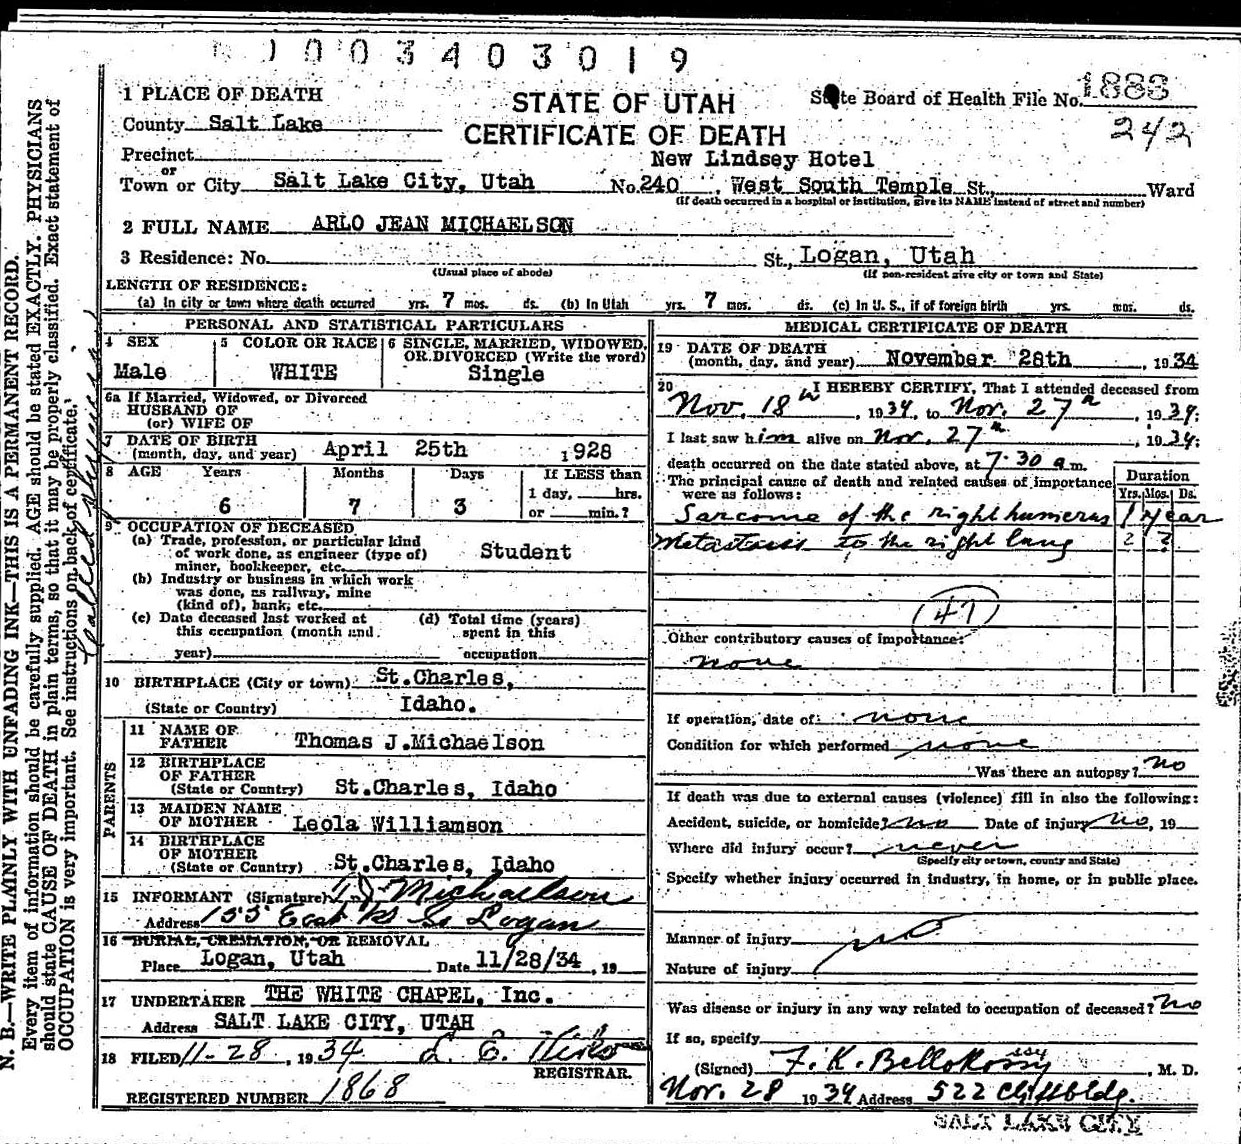 1003403019
1 PLACE OF DEATH
STATE OF UTAH
CERTIFICATE OF DEATH
State Board of Health File No. 1883
242
County Salt Lake
Precinct
or
New Lindsey Hotel
Town or City Salt Lake City, Utah No. 240, West South Temple St., Ward
(If death occurred in a hospital or institution, give its NAME instead of street and number)
2 FULL NAME ARLO JEAN MICHAELSON
3 Residence: No. St., Logan, Utah
(Usual place of abode) (If non-resident give city or town and State)
LENGTH OF RESIDENCE:
(a) In city or town where death occurred yrs. 7 mos. ds. (b) In Utah yrs. 7 mos. ds. (c) In U. S., if of foreign birth yrs. mos. ds.
PERSONAL AND STATISTICAL PARTICULARS
4 SEX
Male
5 COLOR OR RACE
WHITE
6 SINGLE, MARRIED, WIDOWED,
OR DIVORCED (Write the word)
Single
6a If Married, Widowed, or Divorced
HUSBAND OF
(or) WIFE OF
7 DATE OF BIRTH
(month, day, and year) April 25th 1928
8 AGE Years Months Days If LESS than
1 day, hrs.
6 7 3 or min.?
9 OCCUPATION OF DECEASED
(a) Trade, profession, or particular kind
of work done, as engineer (type of) Student
miner, bookkeeper, etc.
(b) Industry or business in which work
was done, as railway, mine
(kind of), bank, etc.
(c) Date deceased last worked at (d) Total time (years)
this occupation (month and spent in this
year) occupation
10 BIRTHPLACE (City or town) St.Charles,
(State or Country) Idaho.
PARENTS
11 NAME OF
FATHER Thomas J.Michaelson
12 BIRTHPLACE
OF FATHER
(State or Country) St.Charles, Idaho
13 MAIDEN NAME
OF MOTHER Leola Williamson
14 BIRTHPLACE
OF MOTHER
(State or Country) St.Charles, Idaho
15 INFORMANT (Signature) T J Michaelson
Address 155 East So Logan
16 BURIAL, CREMATION, OR REMOVAL
Place Logan, Utah Date 11/28/34, 19
17 UNDERTAKER THE WHITE CHAPEL, Inc.
Address SALT LAKE CITY, UTAH
18 FILED 11-28, 1934
REGISTRAR.
REGISTERED NUMBER 1868
MEDICAL CERTIFICATE OF DEATH
19 DATE OF DEATH
(month, day, and year) November 28th, 1934
20 I HEREBY CERTIFY, That I attended deceased from
Nov. 18th, 1934, to Nov. 27th, 1934:
I last saw him alive on Nov. 27th, 1934:
death occurred on the date stated above, at 7.30 am.
The principal cause of death and related causes of importance
were as follows:
Duration
Yrs. Mos. Ds.
Sarcoma of the right humerus 1 year
Metastasis to the right lung ? ?
47
Other contributory causes of importance:
none
If operation, date of: none
Condition for which performed none
Was there an autopsy? no
If death was due to external causes (violence) fill in also the following:
Accident, suicide, or homicide? no Date of injury no, 19
Where did injury occur? never
(Specify city or town, county and State)
Specify whether injury occurred in industry, in home, or in public place.
Manner of injury no
Nature of injury
Was disease or injury in any way related to occupation of deceased? no
If so, specify
(Signed) F. K. Bellokossy, M. D.
Nov. 28 1934 Address 522 Cliff bldg.
SALT LAKE CITY
N. B.—WRITE PLAINLY WITH UNFADING INK—THIS IS A PERMANENT RECORD.
Every item of information should be carefully supplied. AGE should be stated EXACTLY. PHYSICIANS
should state CAUSE OF DEATH in plain terms, so that it may be properly classified. Exact statement of
OCCUPATION is very important. See instructions on back of certificate.